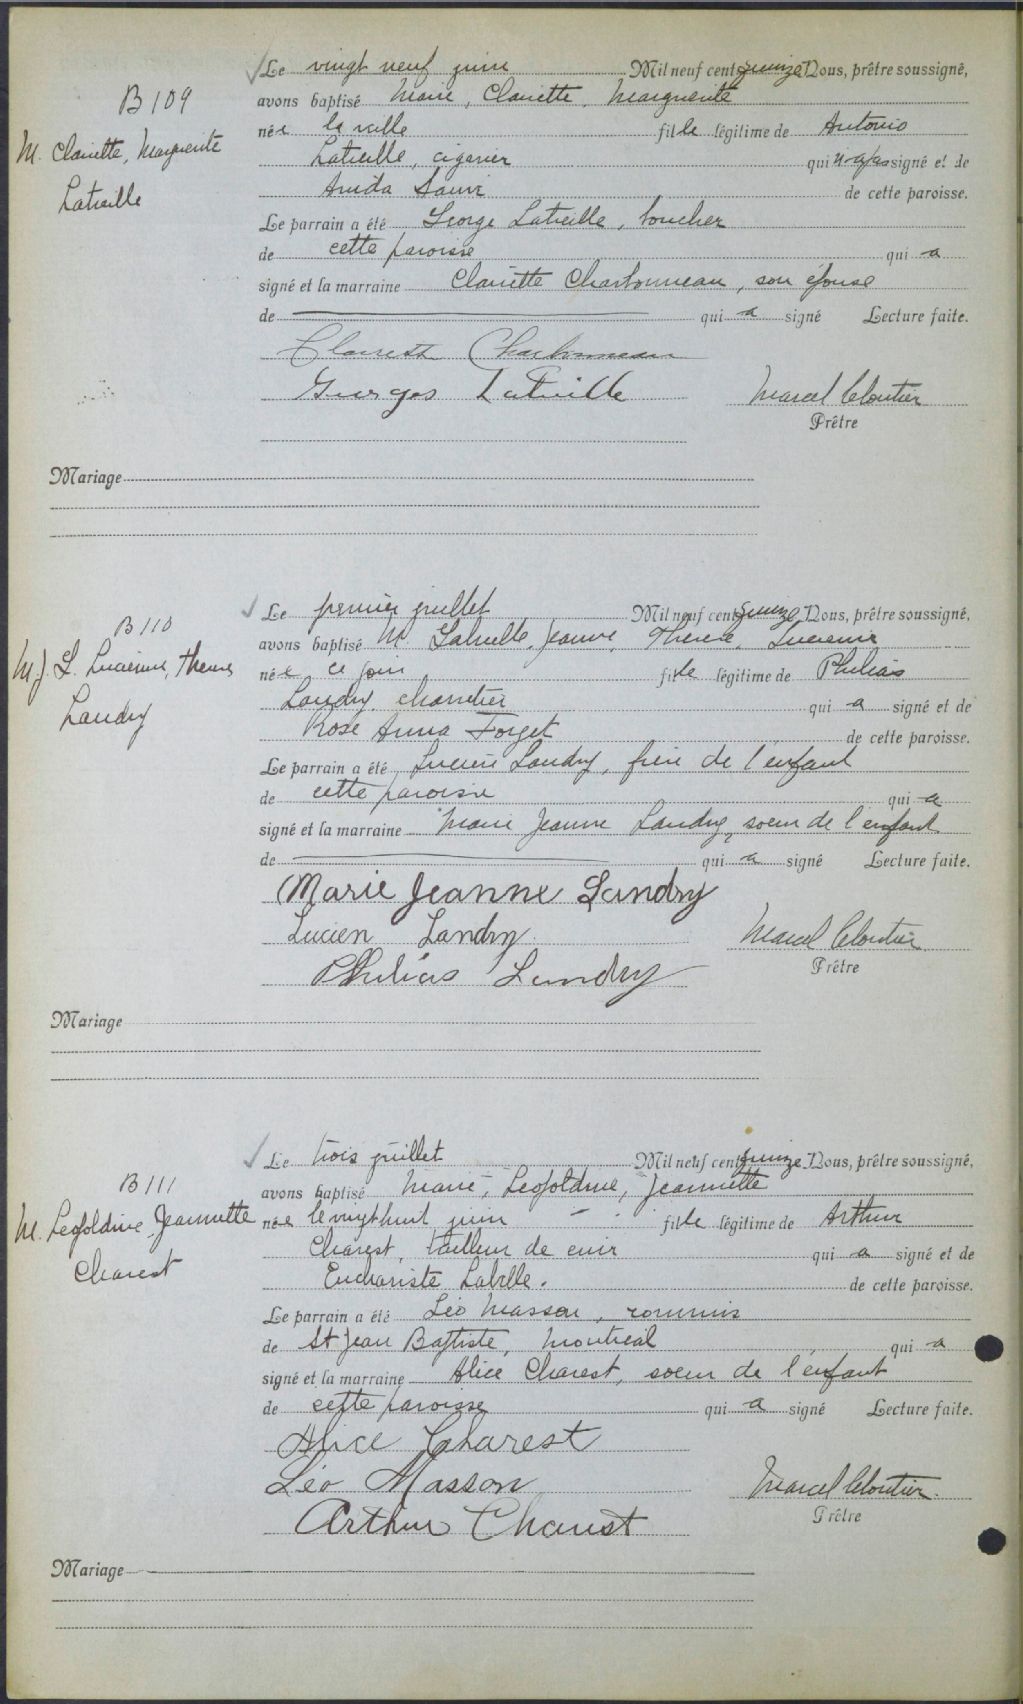 Le vingt neuf juin Mil neuf cent quinze Nous, prêtre soussigné,
B 109
avons baptisé Marie, Clairette, Marguerite
née la veille fille légitime de Antonio
M. Clairette, Marguerite
Latreille
Latreille, cigarier qui n'a pas signé et de
Anida Sauvé de cette paroisse.
Le parrain a été George Latreille, boucher
de cette paroisse qui a
signé et la marraine Clairette Charbonneau, son épouse
de qui a signé Lecture faite.
Clairette Charbonneau
Georges Latreille Marcel Cloutier
Prêtre
Mariage
Le premier juillet Mil neuf cent quinze Nous, prêtre soussigné,
B 110
avons baptisé M. Gabrielle, Jeanne, Thérèse, Lucienne
M. J. G. Lucienne, Thérèse
Landry
née ce jour fille légitime de Philias
Landry, charretier qui a signé et de
Rose Anna Forget de cette paroisse.
Le parrain a été Lucien Landry, frère de l'enfant
de cette paroisse qui a
signé et la marraine Marie Jeanne Landry, soeur de l'enfant
de qui a signé Lecture faite.
Marie Jeanne Landry
Lucien Landry Marcel Cloutier
Philias Landry Prêtre
Mariage
Le trois juillet Mil neuf cent quinze Nous, prêtre soussigné,
B 111
avons baptisé Marie, Léopoldine, Jeannette
M. Léopoldine, Jeannette
Charest
née le vingt huit juin fille légitime de Arthur
Charest, tailleur de cuir qui a signé et de
Euchariste Labelle. de cette paroisse.
Le parrain a été Léo Masson, commis
de St Jean Baptiste, Montréal qui a
signé et la marraine Alice Charest, soeur de l'enfant
de cette paroisse qui a signé Lecture faite.
Alice Charest
Léo Masson Marcel Cloutier
Arthur Charest Prêtre
Mariage